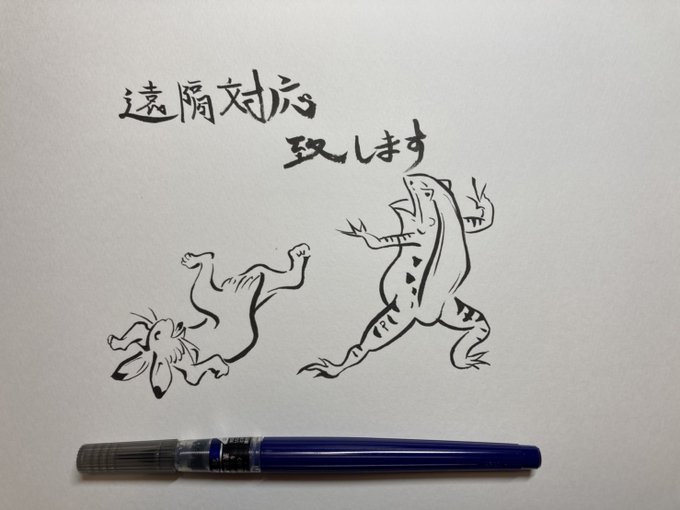 遠隔対応
致します